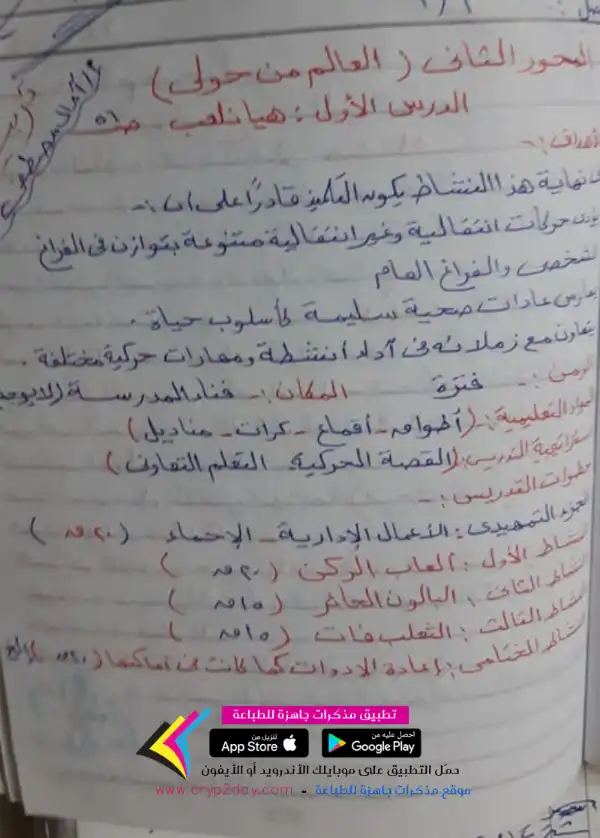 المحور الثانى ( العالم من حولى )
الدرس الأول : هيا نلعب ص ٥١
أ / آمال مصطفى
الأهداف :-
نهاية هذا النشاط يكون التلميذ قادرًا على أن :-
حركات انتقالية وغير انتقالية متنوعة بتوازن فى الفراغ
الشخصى والفراغ العام
يمارس عادات صحية سليمة كأسلوب حياة .
يتعاون مع زملائه فى أداء أنشطة ومهارات حركية مختلفة .
الزمن :- فترة المكان :- فناء المدرسة (
المواد التعليمية : ( أطواق - أقماع - كرات - مناديل )
استراتيجية التدريس ( القصة الحركية التعلم التعاونى )
خطوات التدريس :-
الجزء التمهيدى : الأعمال الإدارية - الإحماء ( ٢٠ ق )
نشاط الأول : ألعاب الركن ( ٢٠ ق )
نشاط الثانى : البالون الحائر ( ١٥ ق )
نشاط الثالث : الثعلب فات ( ١٥ ق )
النشاط الختامى : إعادة الادوات كما كانت فى أماكنها
تطبيق مذكرات جاهزة للطباعة
تنزيل من App Store
احصل عليه من Google Play
حمّل التطبيق على موبايلك الأندرويد أو الأيفون
موقع مذكرات جاهزة للطباعة - www.cryp2day.com